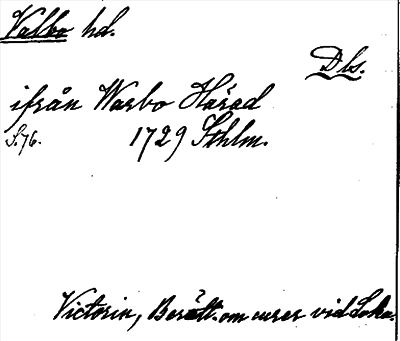 Valbo hd.
Dls.
ifrån Warbo Härad
S. 76. 1729 Sthlm.
Victorin, Berätt. om curer vid Loka.